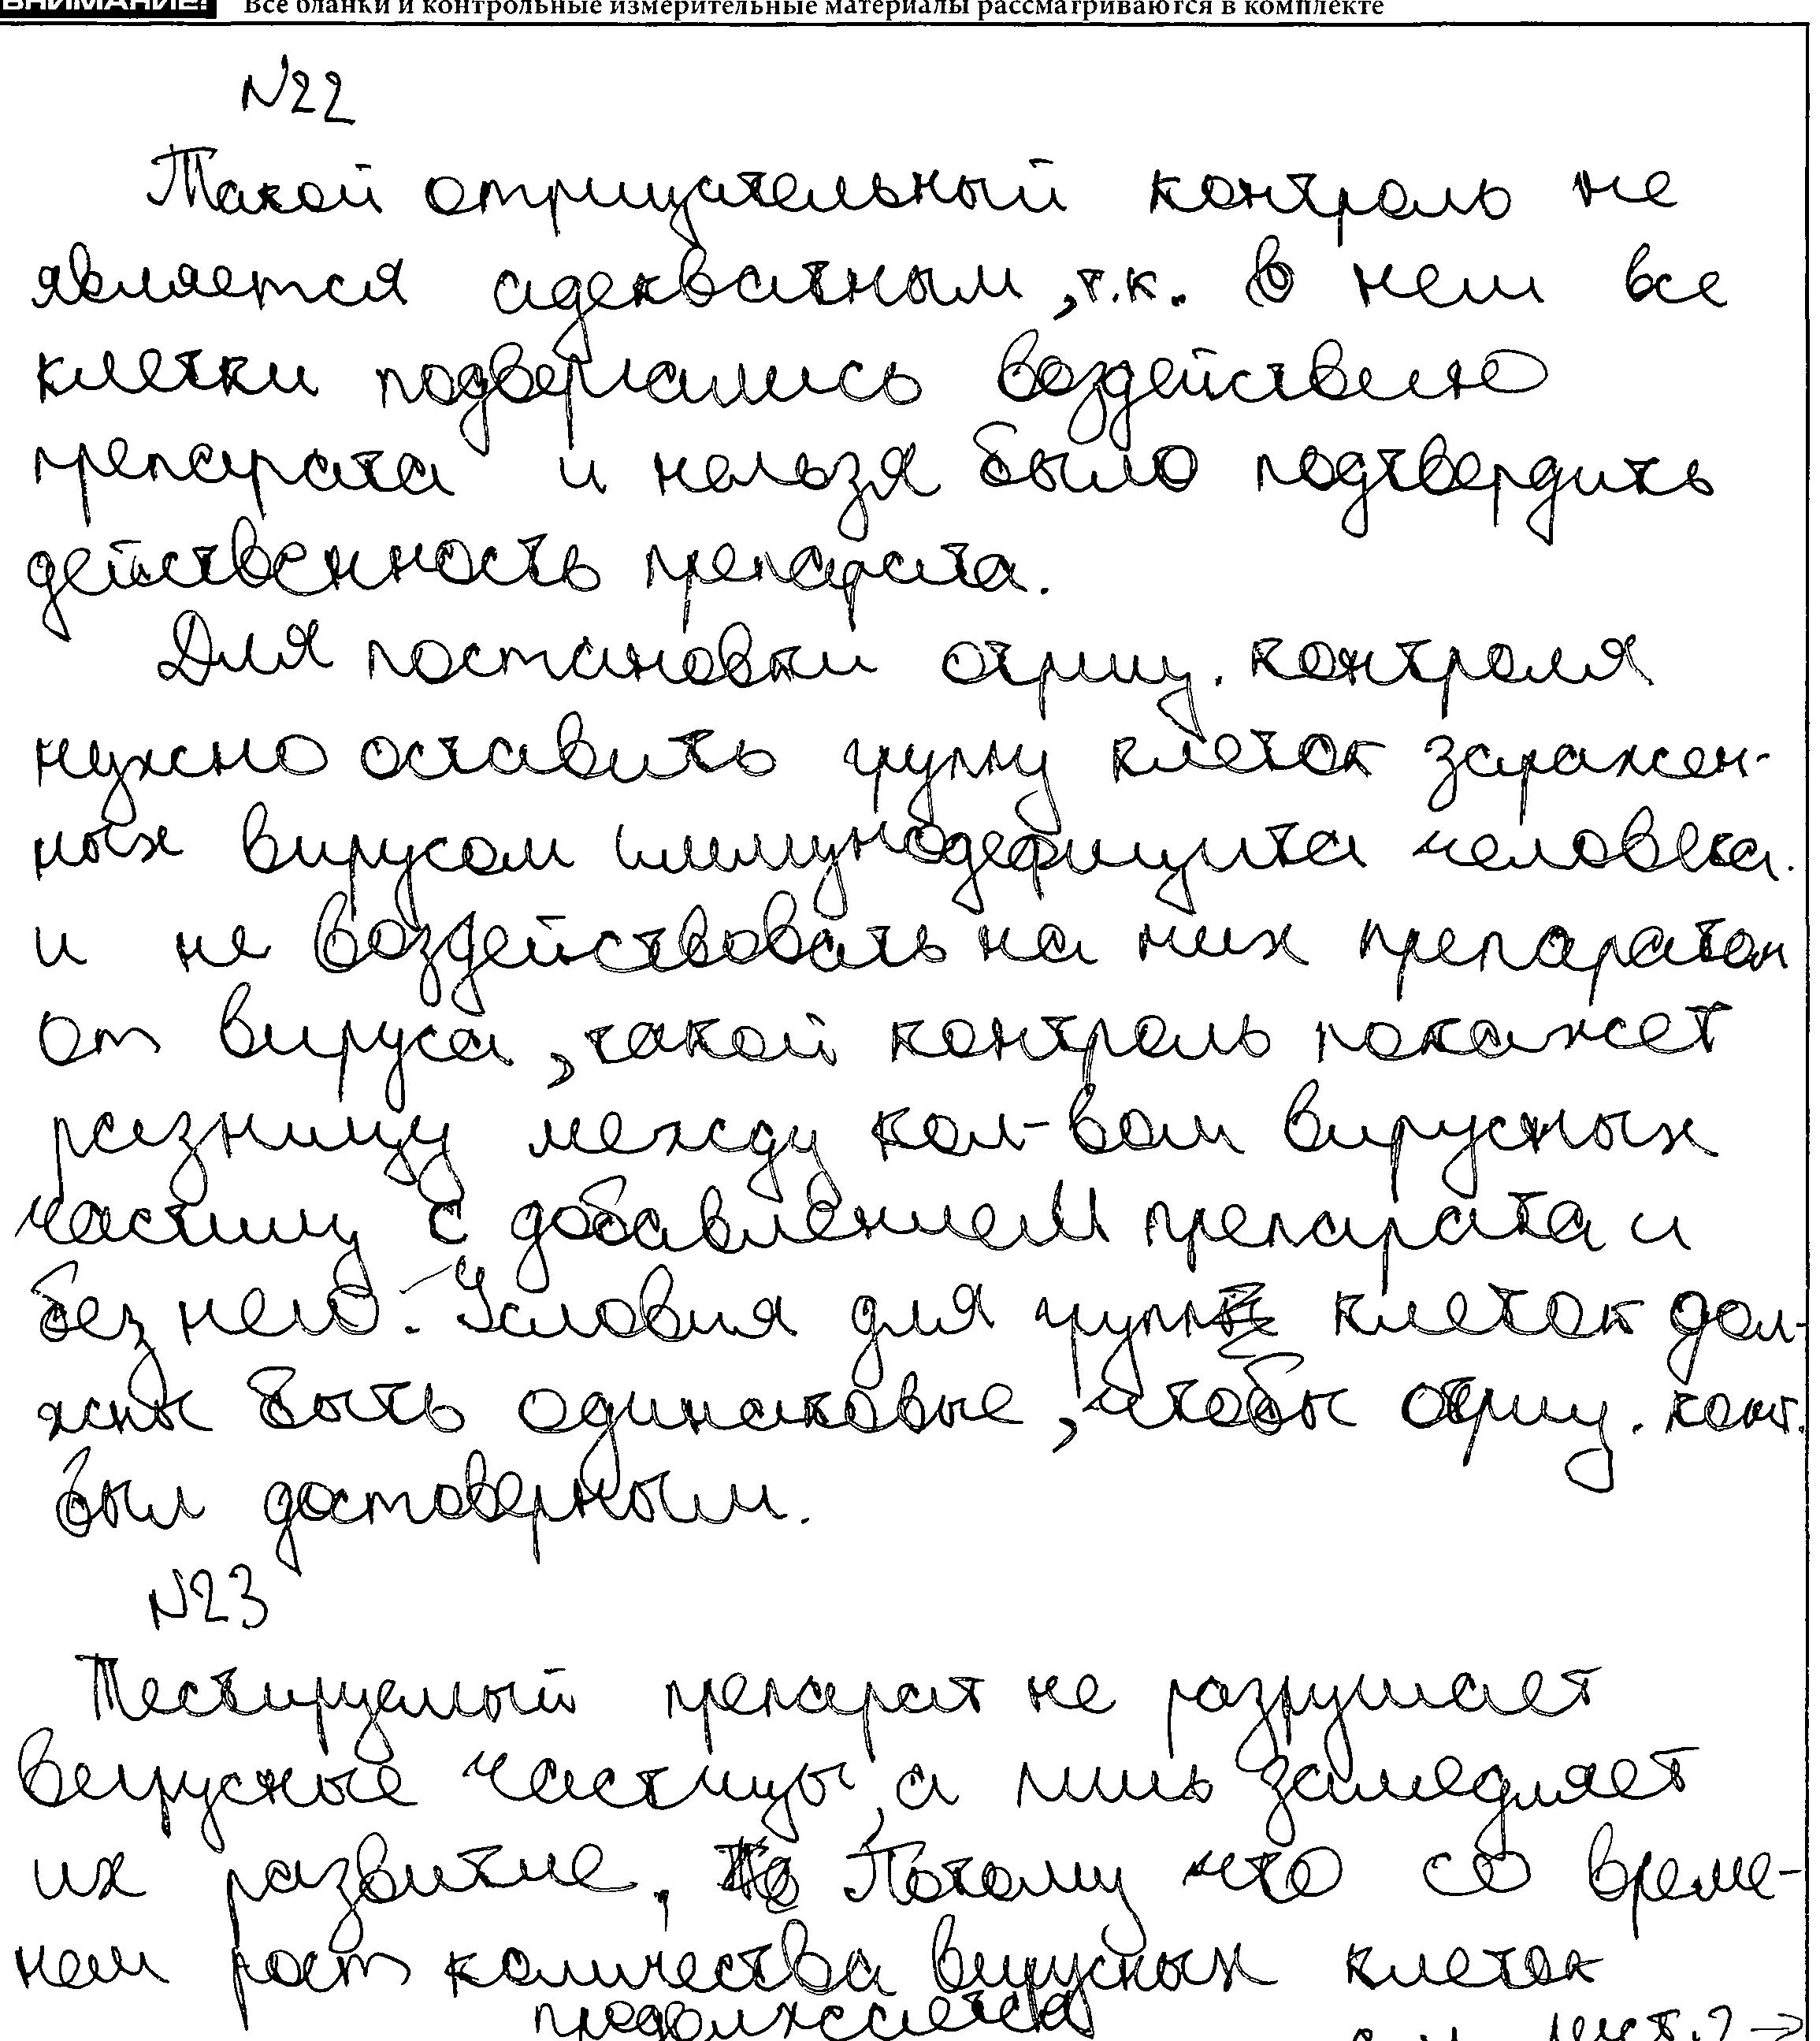 ВНИМАНИЕ! Все бланки и контрольные измерительные материалы рассматриваются в комплекте
№22
Такой отрицательный контроль не
является адекватным, т.к. в нем все
клетки подвергались воздействию
препарата и нельзя было подтвердить
действенность препарата.
Для постановки отриц. контроля
нужно оставить группу клеток заражен-
ных вирусом иммунодефицита человека.
и не воздействовать на них препаратом
от вируса, такой контроль покажет
разницу между кол-вом вирусных
частиц с добавлением препарата и
без него. Условия для групп клеток дол-
жны быть одинаковые, чтобы отриц. конт.
был достоверным.
№23
Тестируемый препарат не разрушает
вирусные частицы, а лишь замедляет
их развитие. Потому что со време-
нем рост количества вирусных клеток
продолжается
лист. 2 →